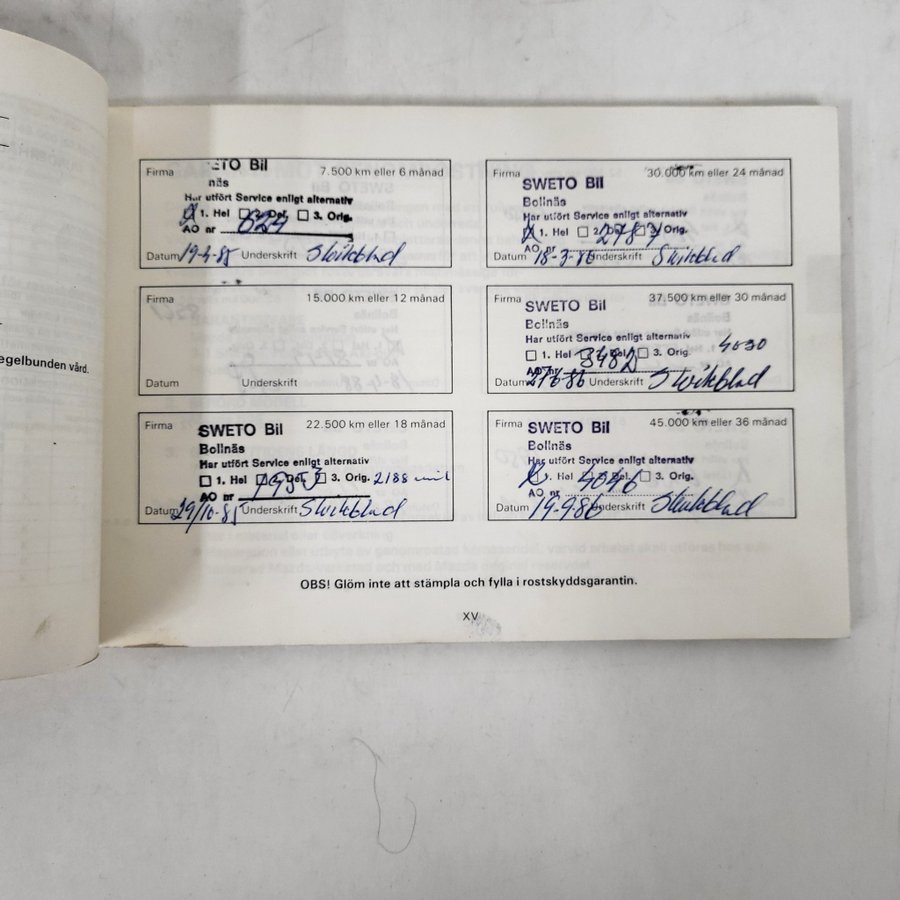 egelbunden vård.
Firma ETO Bil 7.500 km eller 6 månad
näs
Har utfört Service enligt alternativ
1. Hel 2. Del. 3. Orig.
AO nr 624
Datum 19-4-85 Underskrift
Firma 15.000 km eller 12 månad
Datum Underskrift
Firma SWETO Bil 22.500 km eller 18 månad
Bollnäs
Har utfört Service enligt alternativ
1. Hel 2. Del. 3. Orig. 2188 mil
AO nr 1955
Datum 29/10-85 Underskrift
Firma SWETO Bil 30.000 km eller 24 månad
Bollnäs
Har utfört Service enligt alternativ
1. Hel 2. 3. Orig.
AO nr
Datum 18-3-86 Underskrift
Firma SWETO Bil 37.500 km eller 30 månad
Bollnäs
Har utfört Service enligt alternativ
1. Hel 2. Del. 3. Orig. 4030
AO nr 3482
Datum Underskrift
Firma SWETO Bil 45.000 km eller 36 månad
Bollnäs
Har utfört Service enligt alternativ
1. Hel 2. Del. 3. Orig.
AO nr 4046
Datum 19-9-86 Underskrift
OBS! Glöm inte att stämpla och fylla i rostskyddsgarantin.
XV